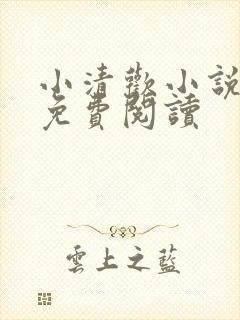 小清歡小說
免費閱讀
雲上之藍